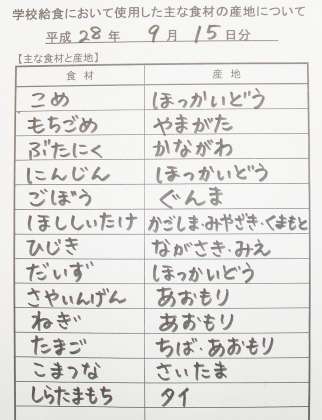 学校給食において使用した主な食材の産地について
平成 28 年 9 月 15 日分
【主な食材と産地】
食材 産地
こめ ほっかいどう
もちごめ やまがた
ぶたにく かながわ
にんじん ほっかいどう
ごぼう ぐんま
ほししいたけ かごしま・みやざき・くまもと
ひじき ながさき・みえ
だいず ほっかいどう
さやいんげん あおもり
ねぎ あおもり
たまご ちば・あおもり
こまつな さいたま
しらたまもち タイ